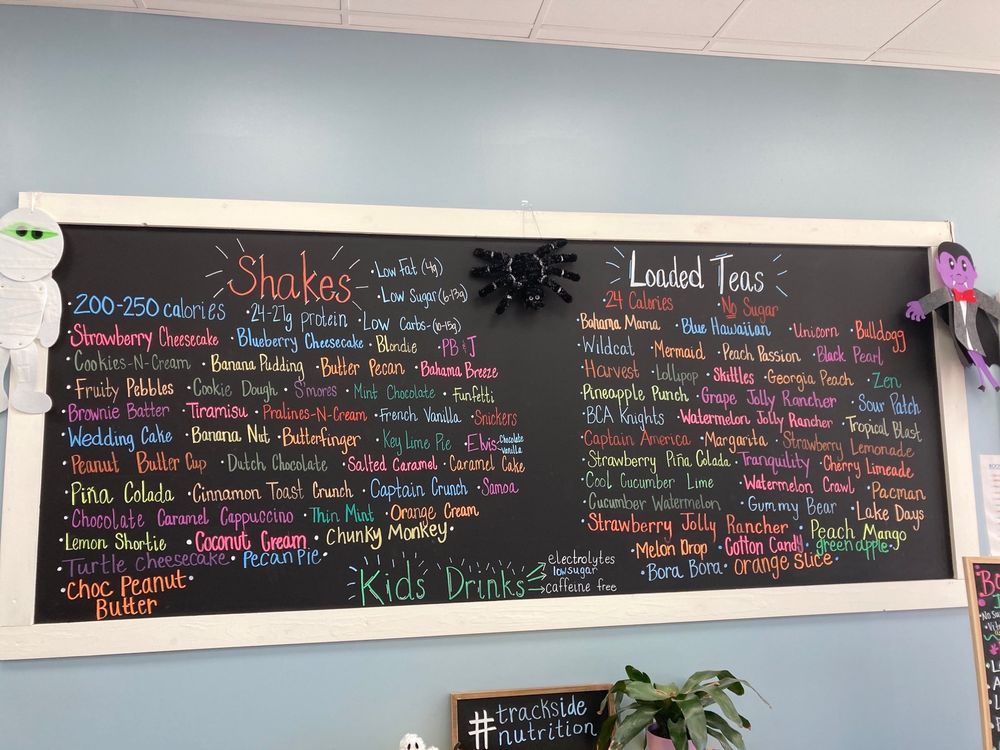 Shakes
•Low Fat (4g)
•Low Sugar (6-13g)
•200-250 calories •24-27g protein •Low Carbs-(10-15g)
•Strawberry Cheesecake •Blueberry Cheesecake •Blondie •PB&J
•Cookies-N-Cream •Banana Pudding •Butter Pecan •Bahama Breeze
•Fruity Pebbles •Cookie Dough •S'mores •Mint Chocolate •Funfetti
•Brownie Batter •Tiramisu •Pralines-N-Cream •French Vanilla •Snickers
•Wedding Cake •Banana Nut •Butterfinger •Key Lime Pie •Elvis Chocolate Vanilla
•Peanut Butter Cup •Dutch Chocolate •Salted Caramel •Caramel Cake
•Piña Colada •Cinnamon Toast Crunch •Captain Crunch •Samoa
•Chocolate Caramel Cappuccino •Thin Mint •Orange Cream
•Lemon Shortie •Coconut Cream •Chunky Monkey•
•Turtle Cheesecake •Pecan Pie•
•Choc Peanut•
Butter
Kids Drinks
electrolytes
low sugar
caffeine free
Loaded Teas
•24 Calories •No Sugar
•Bahama Mama •Blue Hawaiian •Unicorn •Bulldogg
•Wildcat •Mermaid •Peach Passion •Black Pearl
•Harvest •Lollipop •Skittles •Georgia Peach •Zen
•Pineapple Punch •Grape Jolly Rancher •Sour Patch
•BCA Knights •Watermelon Jolly Rancher •Tropical Blast
•Captain America •Margarita •Strawberry Lemonade
•Strawberry Piña Colada •Tranquility •Cherry Limeade
•Cool Cucumber Lime •Watermelon Crawl •Pacman
•Cucumber Watermelon •Gummy Bear •Lake Days
•Strawberry Jolly Rancher •Peach Mango
•Melon Drop •Cotton Candy •green apple•
•Bora Bora• orange slice•
#trackside
nutrition